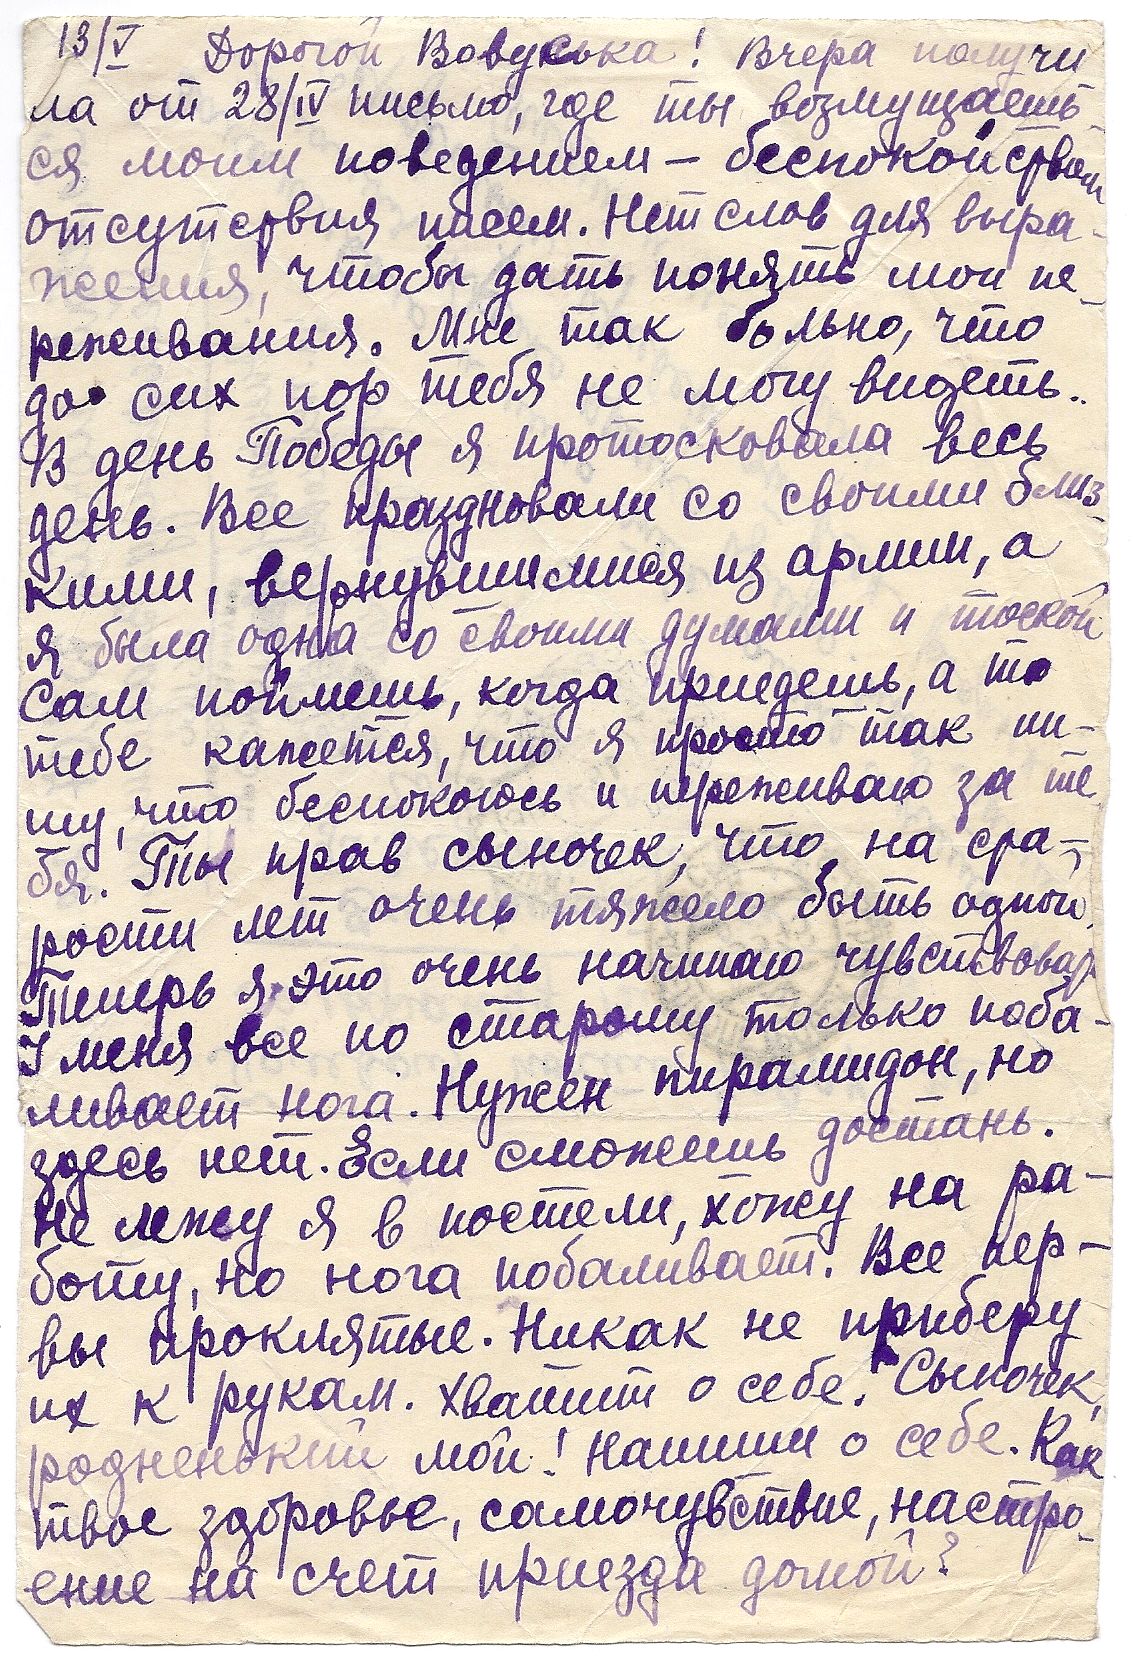 13/V Дорогой Вовуська! Вчера получи
ла от 28/IV письмо, где ты возмущаешь-
ся моим поведением – беспокойством
отсутствия писем. Нет слов для выра-
жения, чтобы дать понять мои пе-
реживания. Мне так больно, что
до сих пор тебя не могу видеть..
В день Победы я протосковала весь
день. Все праздновали со своими близ-
кими, вернувшимися из армии, а
я была одна со своими думами и тоской
Сам поймешь, когда приедешь, а то
тебе кажется, что я просто так пи-
шу, что беспокоюсь и переживаю за те
бя. Ты прав сыночек, что на ста-
рости лет очень тяжело быть одной.
Теперь я это очень начинаю чувствовать
У меня все по старому только поба-
ливает нога. Нужен пирамидон, но
здесь нет. Если сможешь достань.
Не лежу я в постели, хожу на ра-
боту, но нога побаливает. Все нер-
вы проклятые. Никак не приберу
их к рукам. Хватит о себе. Сыночек,
родненький мой! Напиши о себе. Как
твое здоровье, самочувствие, настро-
ение на счет приезда домой?